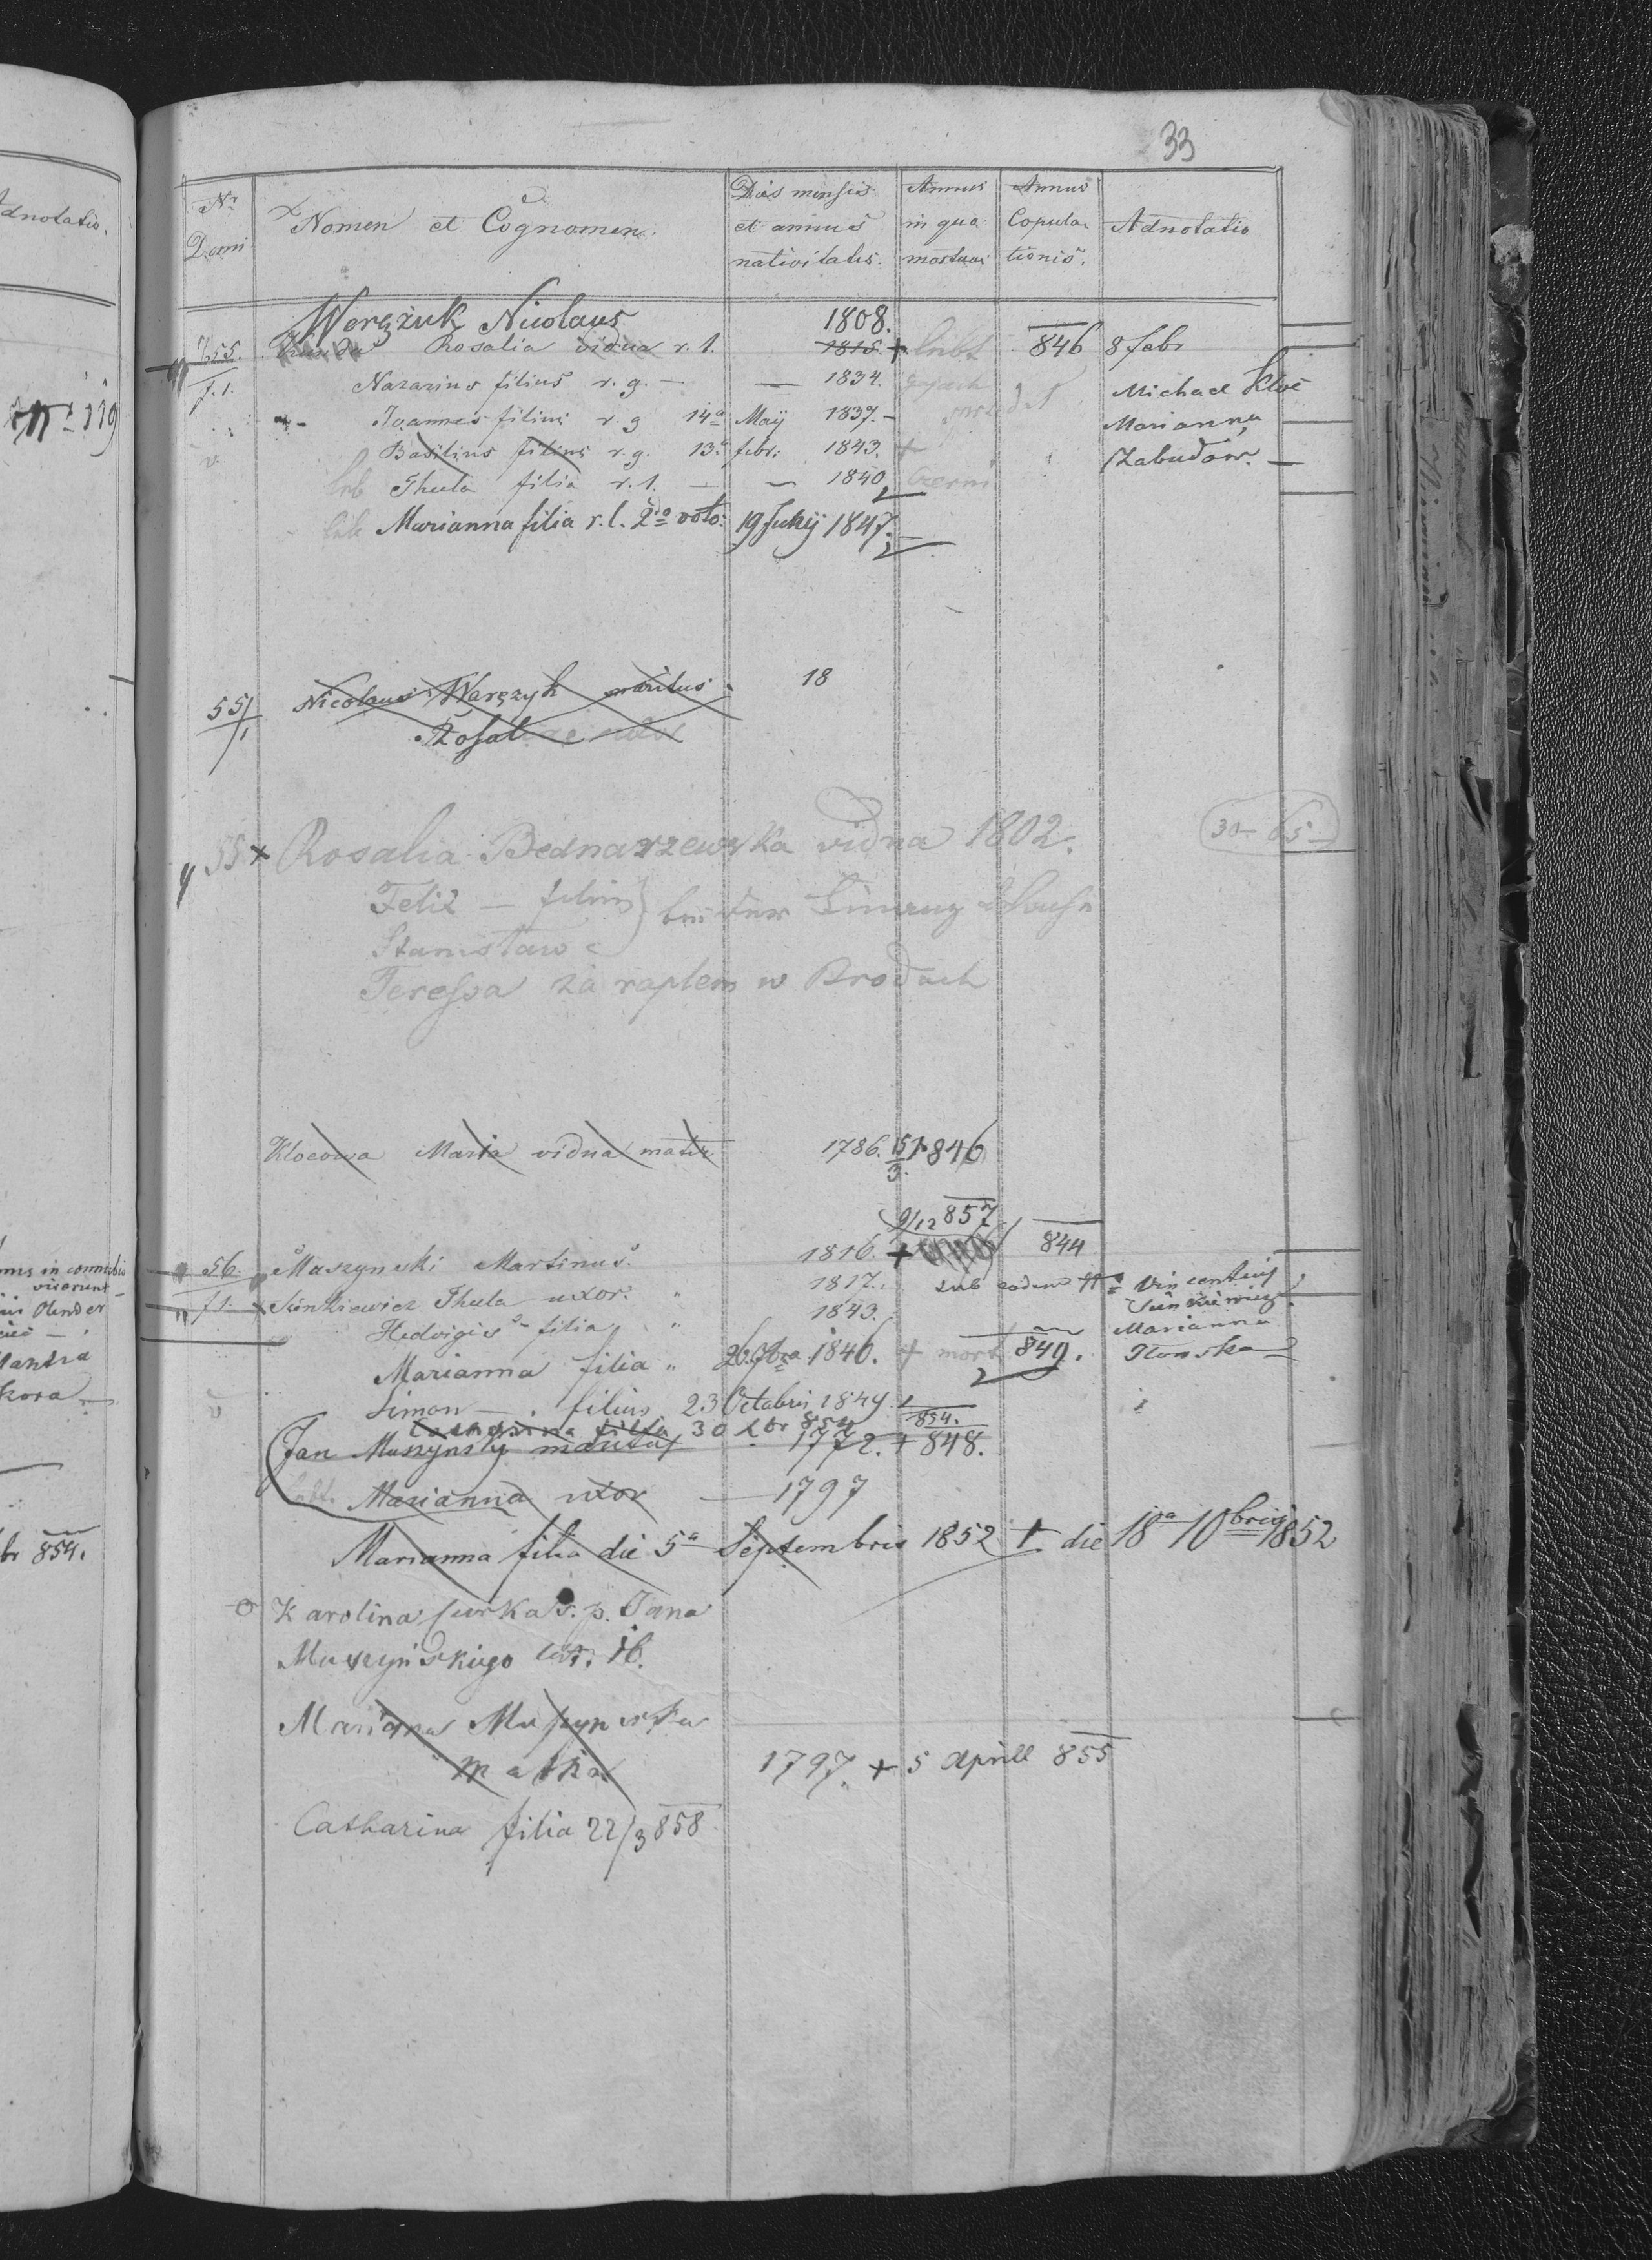 33
Nr Domi
Nomen et Cognomen.
Dies mensis et annus nativitatis.
Annus in quo mortuus
Annus Copulationis.
Adnotatio
Weręzuk Nicolaus 1808.
55. Rosalia vidua r. l. 1815. + 846 8 febr
f. 1. Nazarius filius r. g. — — 1834. Michael Kloc
Joannes filius r. g 14a Maÿ 1837. — Marianna
Basilius filius r. g. 13a febr: 1843. + Zabudow. —
Thecla filia r. l. — — 1840
Marianna filia r. l. 2do voto. 19 Julÿ 1847.
55/1 Nicolaus Waręzyk maritus. 18
Rosal uxor
55 x Rosalia Bednarzewska vidua 1802. 30 — 65 —
Felix — filius
Stanisław
Teressa za raplem w Brodach
Klocowa Maria vidua mater 1786. 15/3. + 846
9/12 857
56. Muszynski Martinus. 1816. + 844
f. 1. x Sinkiewicz Thecla uxor. " 1817. sub eodem Vincentius
Sinkiewicz
Hedvigis filia " 1843. Marianna
Marianna filia " 1846. + mort 849. Ilonska
Simon — filius 23 Octobris 1849.
Catharina filia 30 854 854.
Jan Muszynsky maritus 1772. + 848.
Marianna uxor — 1797
Marianna filia die 5a Septembris 1852 + die 18a 10bris 1852
Karolina curka ś. p. Jana
Muszyńskiego 16.
Mariana Muszynska
matka 1797. + 5 Aprill 855
Catharina filia 22/3 858
Adnotatio.
119
in connubio
Olender
kora
854.